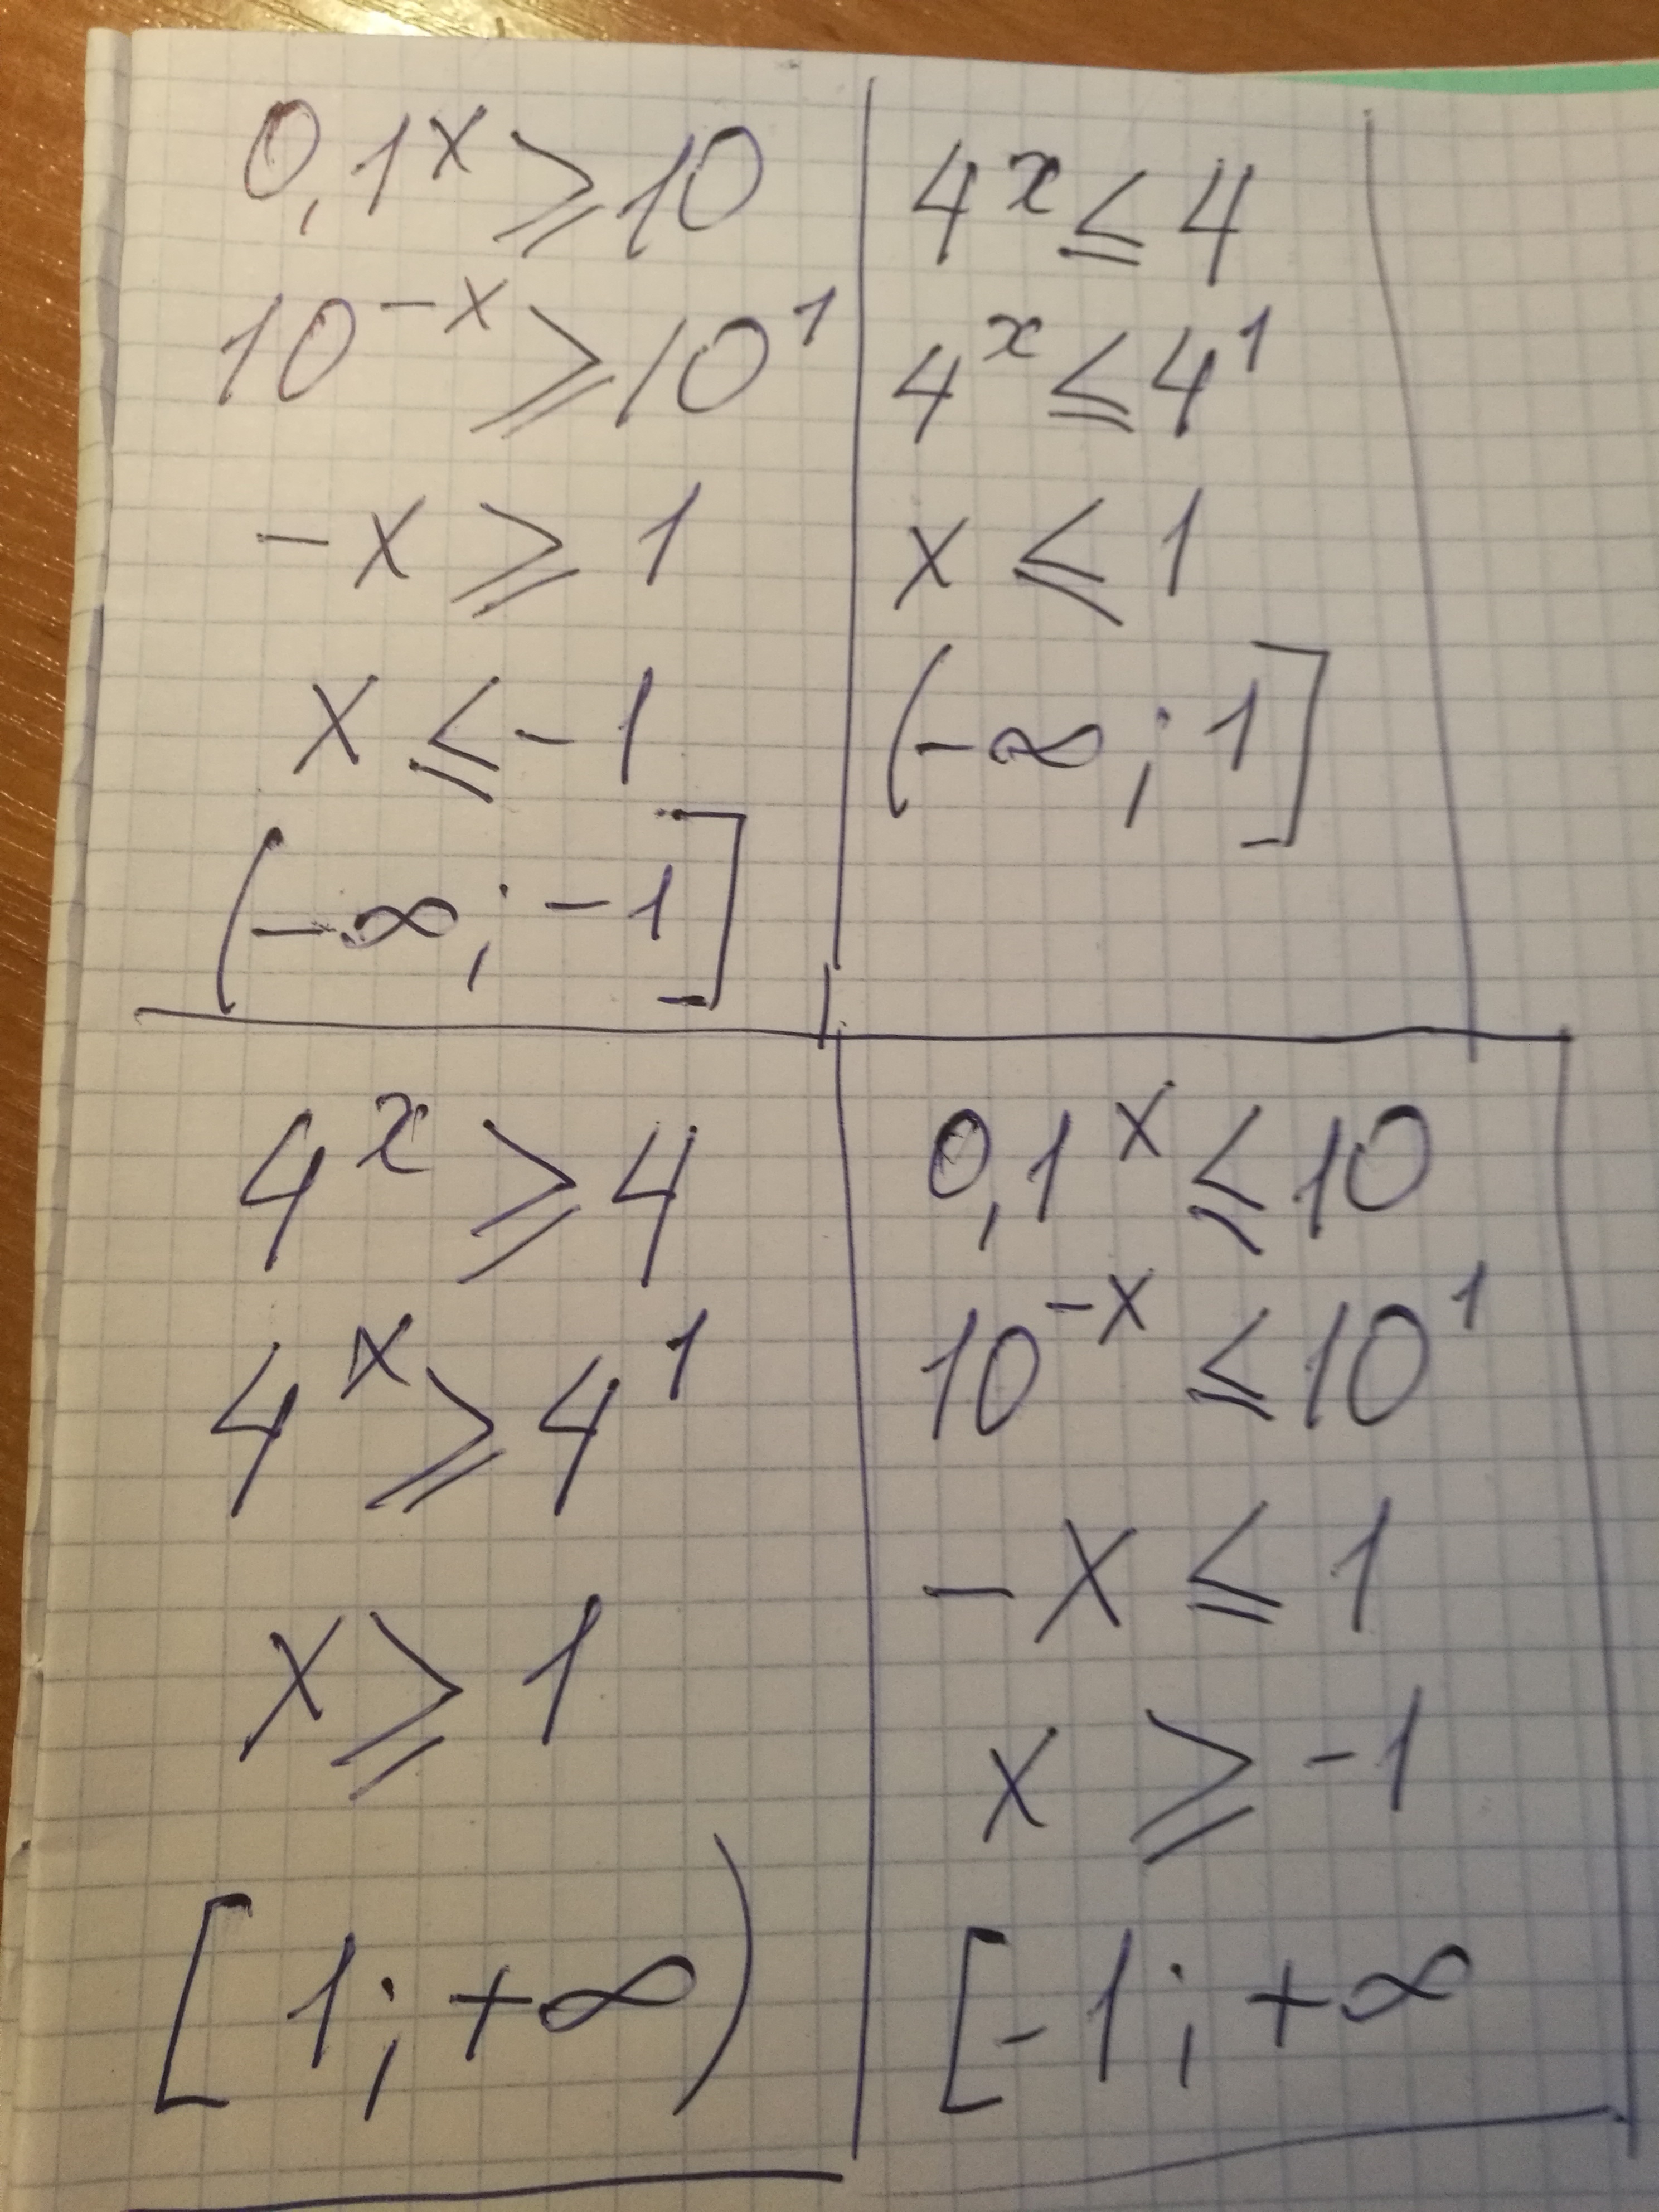 0,1^x ⩾ 10
10^-x ⩾ 10^1
-x ⩾ 1
x ⩽ -1
(-∞; -1]
4^x ⩽ 4
4^x ⩽ 4^1
x ⩽ 1
(-∞; 1]
4^x ⩾ 4
4^x ⩾ 4^1
x ⩾ 1
[1; +∞)
0,1^x ⩽ 10
10^-x ⩽ 10^1
-x ⩽ 1
x ⩾ -1
[-1; +∞